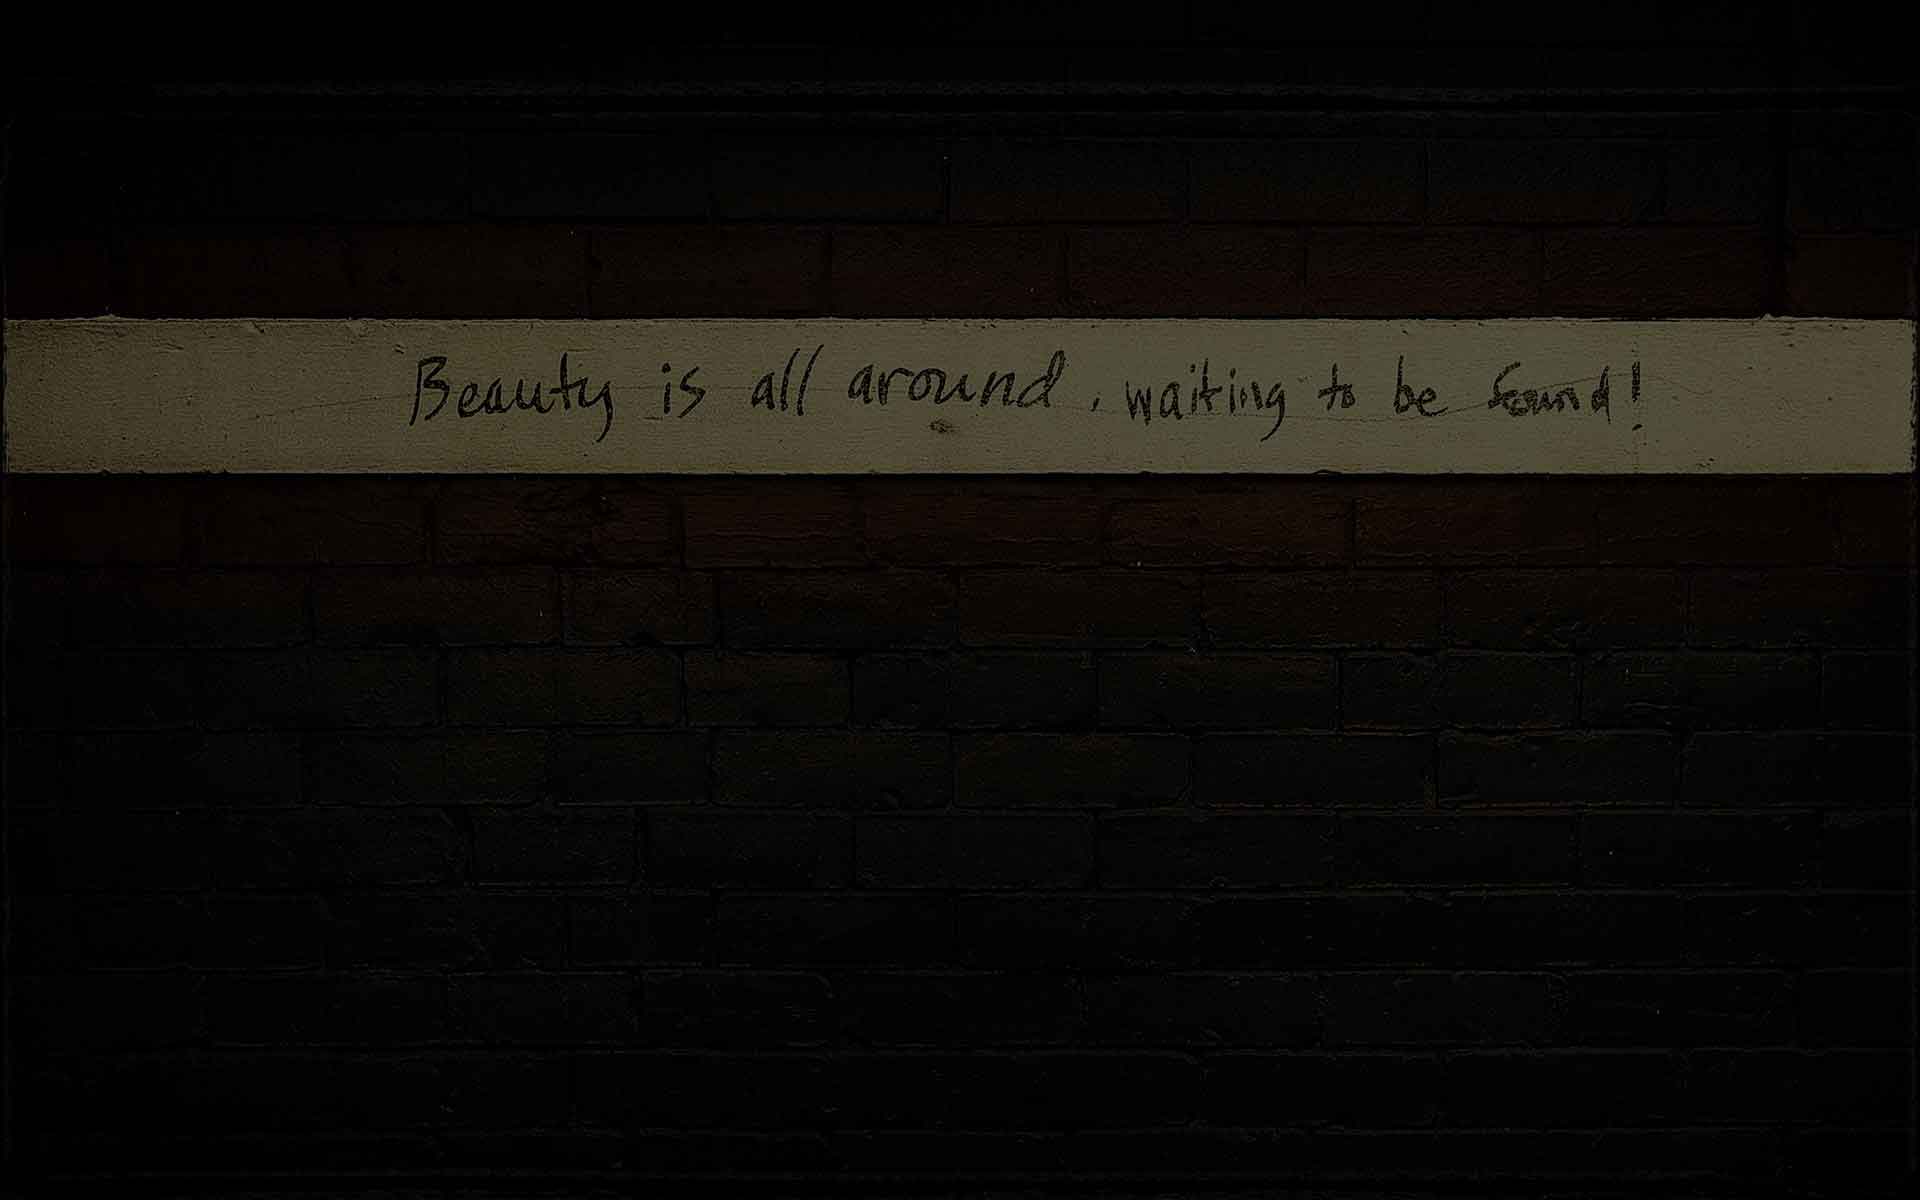 Beauty is all around, waiting to be found!